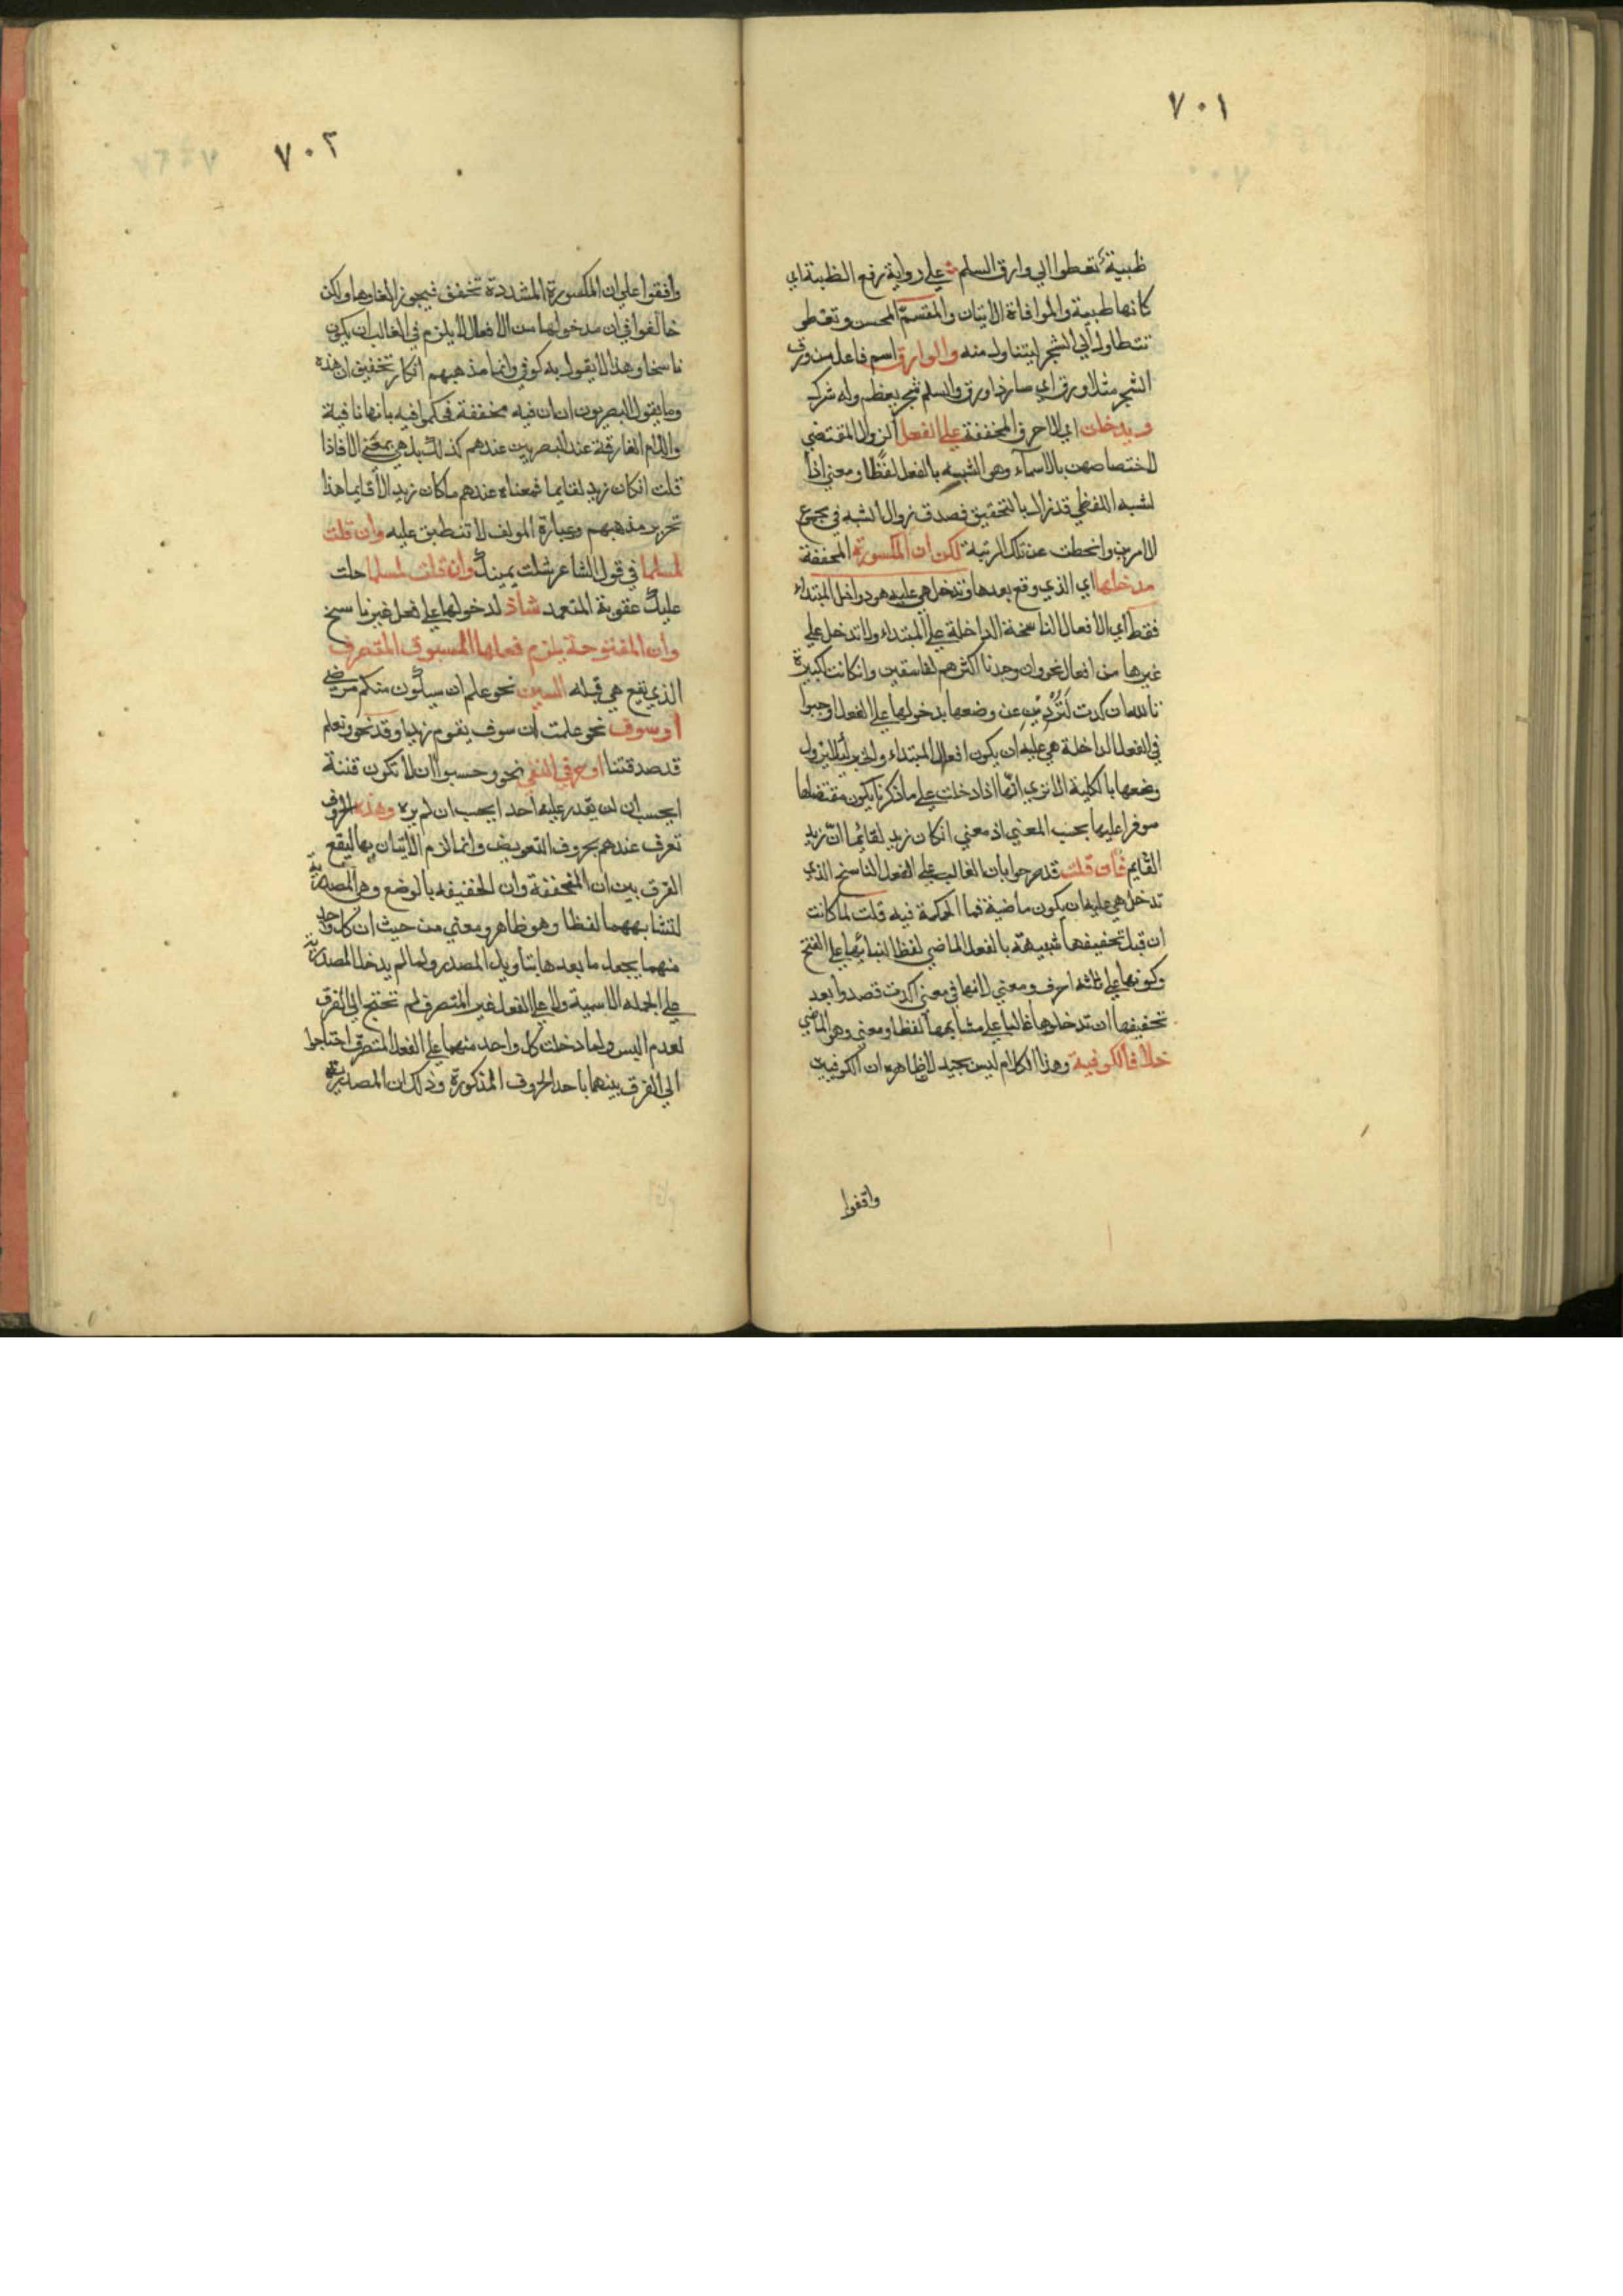 ٧٠١
ظبية تعطوا الي وارق السلم علي رواية رفع الظبية اي
كانها ظبية والموافاة الاتيان والمقسم المحسن وتعطو
تتطاول الي الشجر ليتناول منه والوارق اسم فاعل من ورق
الشجر مثل اورق اي صار ذا ورق والسلم شجر يعظم وله شرك
ويدخلن اي الاحرف المخففة علي الفعل لزوال المقتضي
لاختصاصهن بالاسماء وهو الشبه بالفعل لفظا ومعني اذا
لشبه اللفظي قد زال بالتخفيف فصدق زوال الشبه في مجموع
الامرين وانحطت عن تلك الرتبة لكن ان المكسورة المخففة
مدخلها اي الذي وقع بعدها وتدخل هي عليه هو دواخل المبتداء
فقط اي الافعال الناسخة الداخلة علي المبتداء ولا تدخل علي
غيرها من افعال نحو وان وجدنا اكثرهم لفاسقين وان كانت لكبيرة
تالله ان كدت لَتُرْدِين عن وضعها بدخولها علي الفعل اوجبوا
في الفعل الداخلة هي عليه ان يكون افعال المبتداء والخبر لئلا يزول
وضعها بالكلية الا تري انها اذا دخلت علي ما ذكرنا يكون مقتضاها
موفرا عليها بحسب المعني اذ معني ان كان زيد لقائما ان زيد
القايم فان قلت قد صرحوا بان الغالب علي الفعل الناسخ الذي
تدخل هي عليه ان يكون ماضية فما الحكمة فيه قلت لما كانت
ان قبل تخفيفها شبيهة بالفعل الماضي لفظا لبنائها علي الفتح
وكونها علي ثلثة احرف ومعني لانها في معني اكدت قصدوا بعد
تخفيفها ان تدخلوها غالبا علي مشابهها لفظا ومعني وهو الماضي
خلافا للكوفية وهذا الكلام ليس بجيد لان ظاهره ان الكوفيين
وافقوا
٧٠٢
وافقوا علي ان المكسورة المشددة تخفف فيجوز الغاوها ولكن
خالفوا في ان مدخولها من الافعال لا يلزم في الغالب ان يكون
ناسخا وهذا لا يقول به كوفي وانما مذهبهم انكار تخفيف ان هذه
وما يقول البصريون ان ان فيه مخففة فحكموا فيه بانها نافية
واللام الفارقة عند البصريين عندهم كذلك بل هي بمعني الا فاذا
قلت ان كان زيد لقايما فمعناه عندهم ما كان زيد الا قايما هذا
تحرير مذهبهم وعبارة المولف لا تنطبق عليه وان قلت
لمسلما في قول الشاعر شلت يمينك وان قتلت لمسلما حلت
عليك عقوبة المتعمد شاذ لدخولها علي فعل غير ناسخ
وان المفتوحة يلزم فعلها المسبوق المتصرف
الذي تقع هي قبله السين نحو علم ان سيكون منكم مرضي
او سوف نحو علمت ان سوف يقوم زيد او قد نحو ونعلم
قد صدقتنا او حرف النفي نحو وحسبوا ان لا تكون فتنة
ايحسب ان لن يقدر عليه احد ايحسب ان لم يره وهذه الحروف
تعرف عندهم بحروف التعويض وانما لزم الاتيان بها ليقع
الفرق بين ان المخففة وان الخفيفه بالوضع وهي المصدرية
لتشابههما لفظا وهو ظاهر ومعني من حيث ان كل واحد
منهما يجعل ما بعدها بتاويل المصدر ولما لم يدخل المصدرية
علي الجملة الاسمية ولا علي الفعل غير المتصرف لم تحتج الي الفرق
لعدم اليس ولما دخلت كل واحد منهما علي الفعل المتصرف احتاجوا
الي الفرق بينهما باحد الحروف المذكورة وذلك ان المصدرية